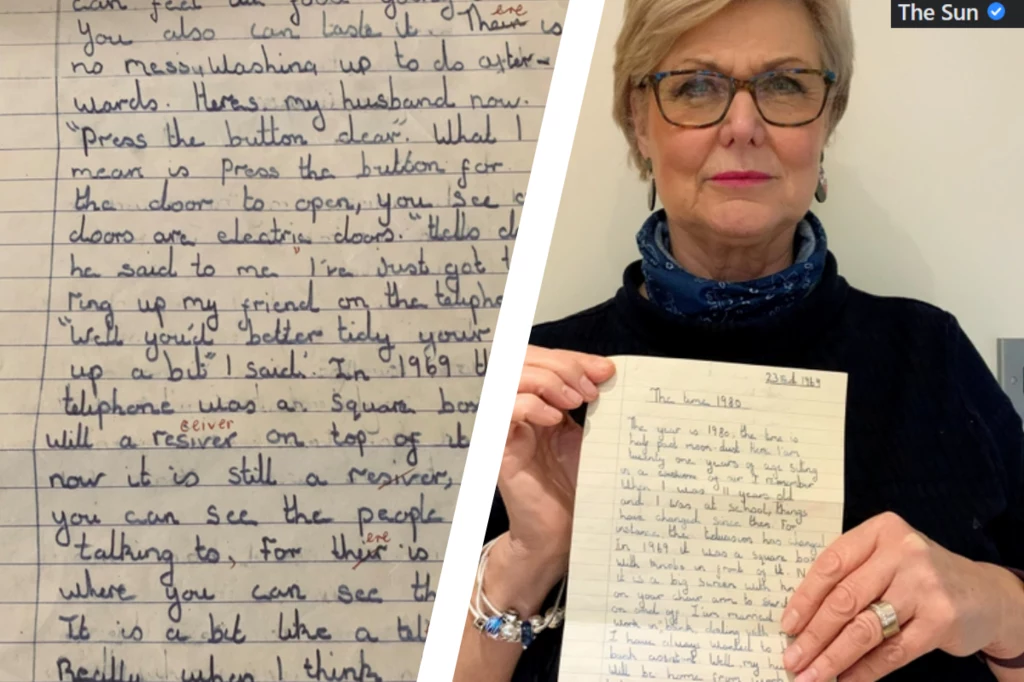 can feel
You also can taste it. Their is
ere
no messy washing up to do after-
wards. Heres my husband now.
"Press the button dear". What I
mean is press the button for
the door to open, you see
doors are electric doors. "Hello
he said to me "I've just got
ring up my friend on the
"Well you'd better tidy your
up a bit" I said. In 1969
telephone was a square
ceiver
will a resiver on top of it
now it is still a resiver,
you can see the people
talking to, for their is
ere
where you can see
It is a bit like a
Really when I think
The Sun
23 Feb 1969
The time 1980
The year is 1980, the time is
half past noon
twenty one years of age siting
in a cushion of air I remember
When I was 11 years old
and I was at school, things
have changed since then. For
instance, the television has changed
In 1969 it was a square
With knobs in front of it.
it is a big screen with
on your chair arm to
on and off. I am married
work in bank dealing with
I have always wanted to
bank Well my
Will be home from work